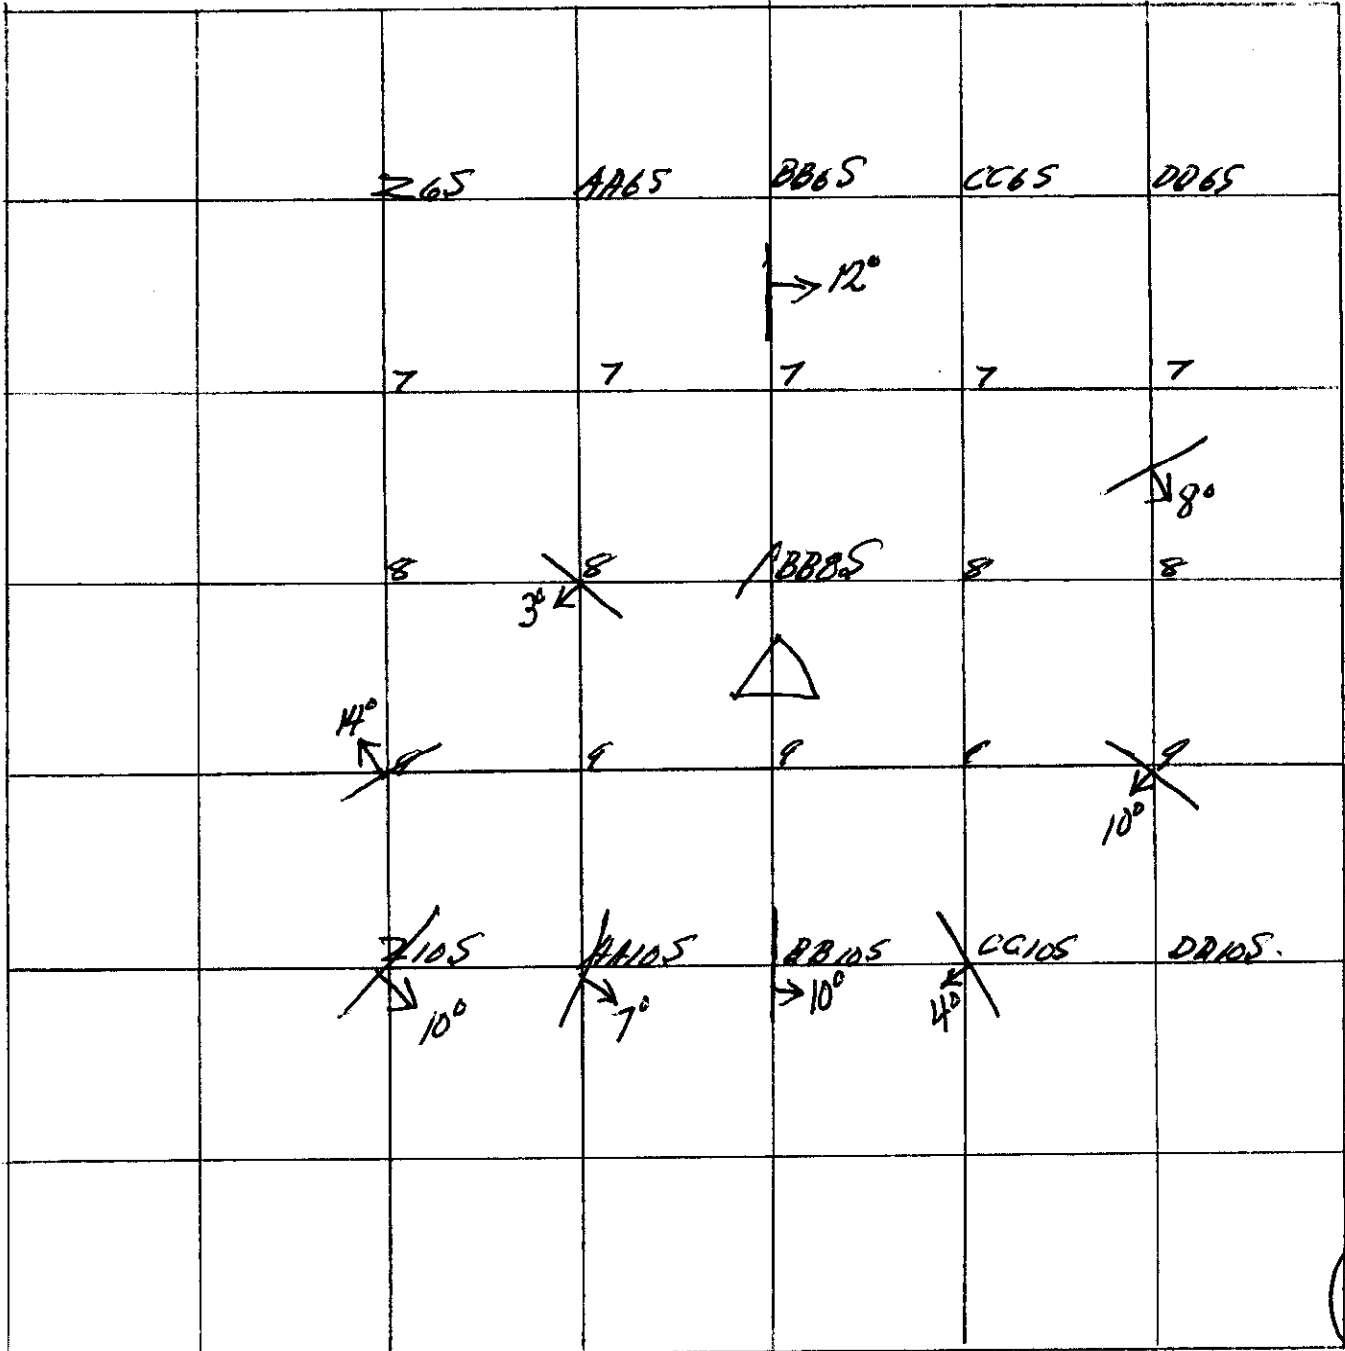 Z6S AA6S BB6S CC6S DD6S
12°
7 7 7 7 7
8°
8 8 BB8S 8 8
3°
14°
9 9 9 9
10°
Z10S AA10S BB10S CC10S DD10S.
10° 7° 10° 4°